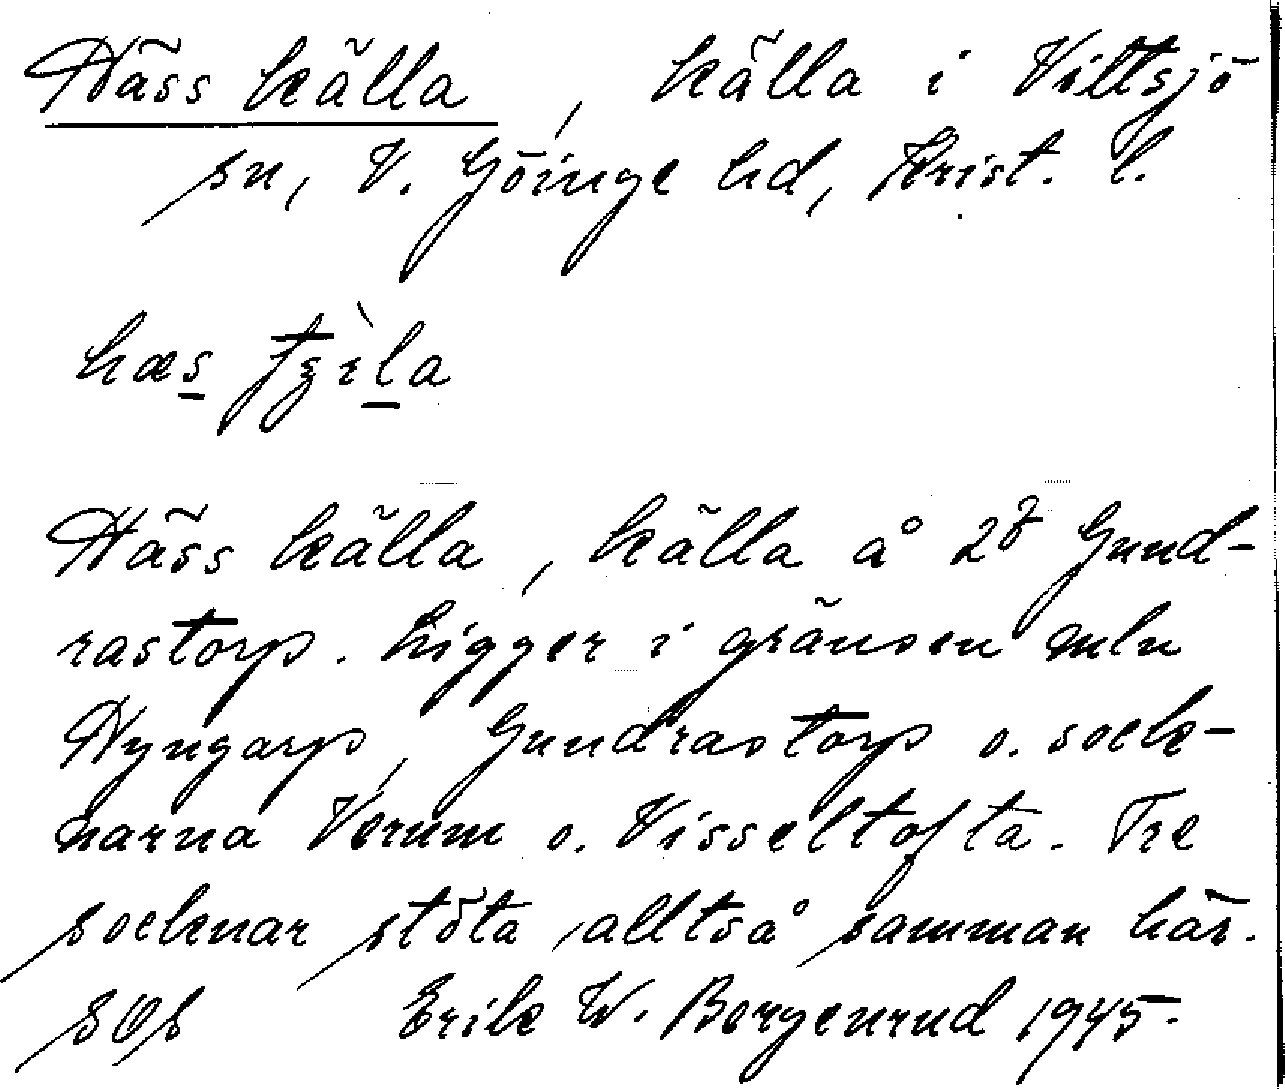 Häss källa, källa i Vittsjö
sn, V. Göinge hd, Krist. l.
hæs
Häss källa, källa å 2⁸ Gund-
rastorp. Ligger i gränsen mln
Nyngarp, Gundrastorp o. sock-
narna Verum o. Visseltofta. Tre
socknar stöta alltså samman här.
Erik W. Bergenrud 1945.